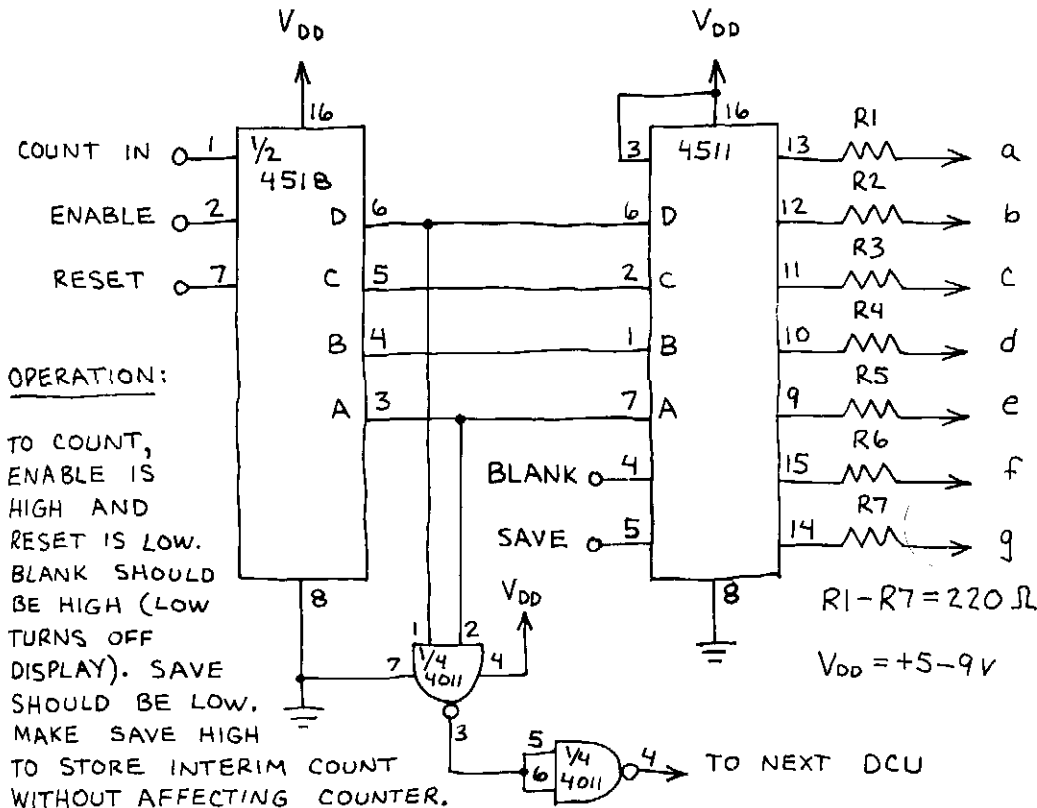 VDD
VDD
16
16
COUNT IN
1
1/2
4518
ENABLE
2
RESET
7
D
6
C
5
B
4
A
3
8
3
4511
6
D
2
C
1
B
7
A
BLANK
4
SAVE
5
8
13
R1
a
12
R2
b
11
R3
c
10
R4
d
9
R5
e
15
R6
f
14
R7
g
R1-R7 = 220 Ω
VDD = +5-9V
OPERATION:
TO COUNT,
ENABLE IS
HIGH AND
RESET IS LOW.
BLANK SHOULD
BE HIGH (LOW
TURNS OFF
DISPLAY). SAVE
SHOULD BE LOW.
MAKE SAVE HIGH
TO STORE INTERIM COUNT
WITHOUT AFFECTING COUNTER.
VDD
1
2
7
1/4
4011
4
3
5
6
1/4
4011
4
TO NEXT DCU